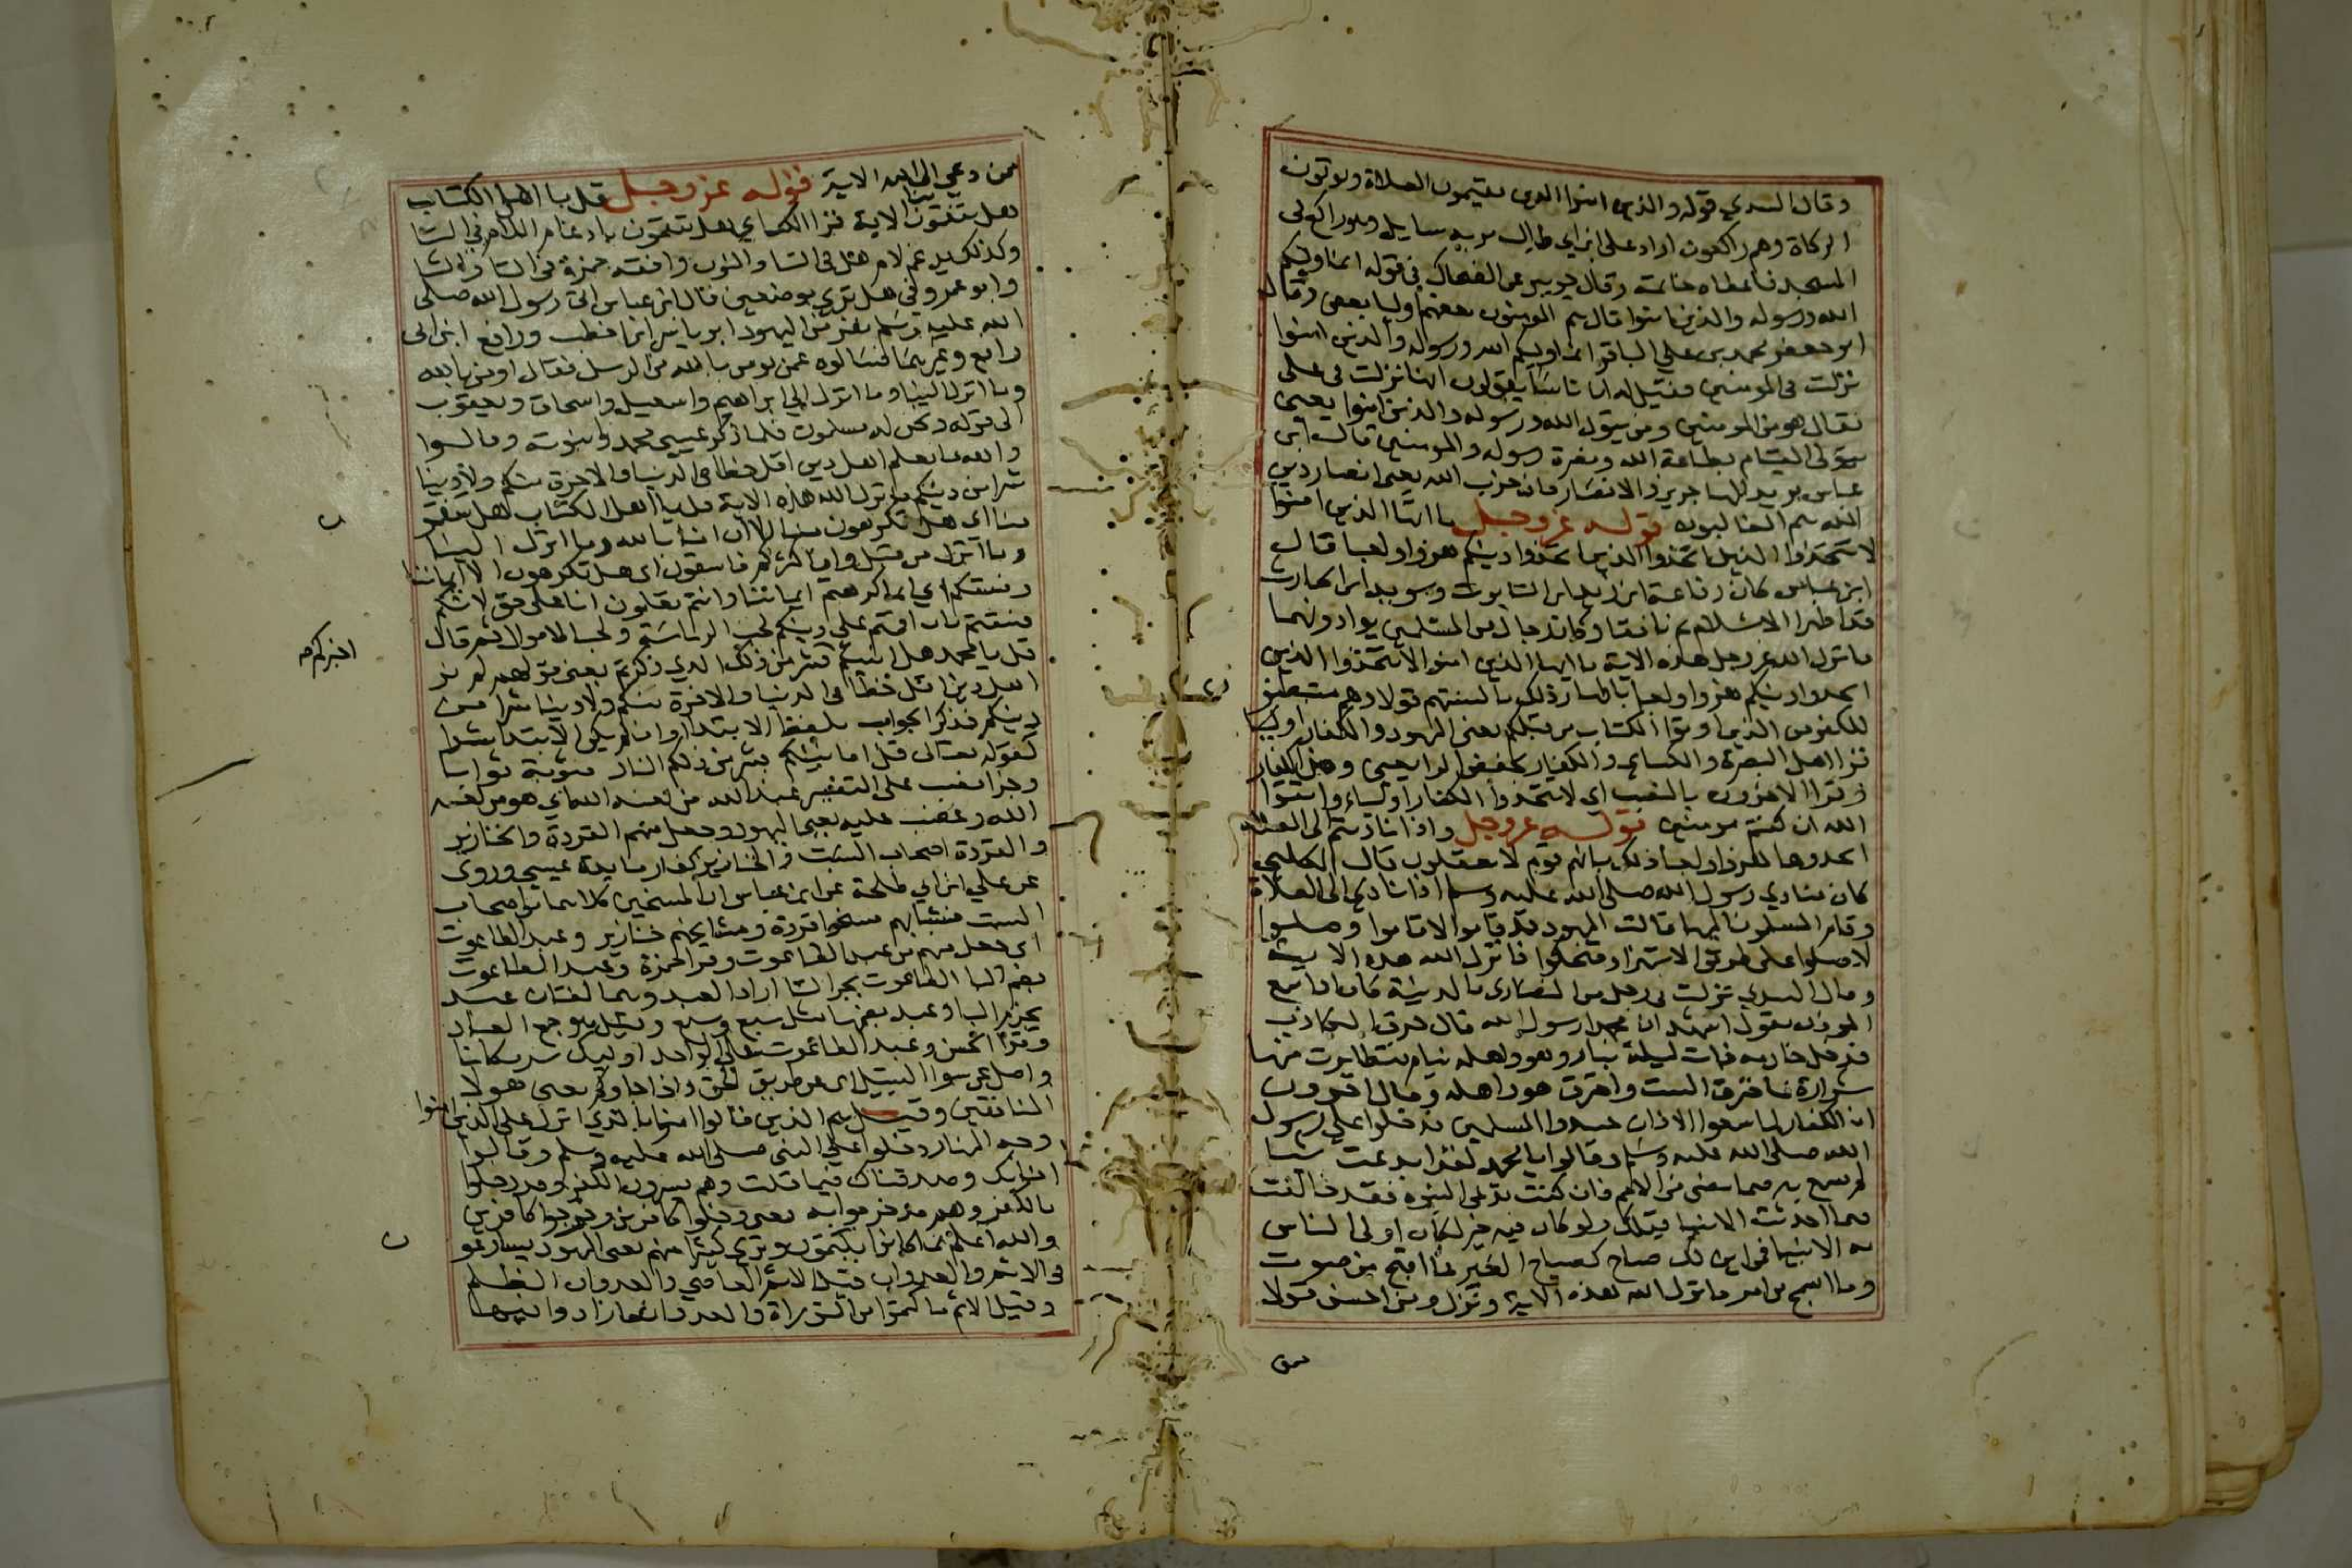 وقال السدي قوله والذين امنوا الذين يقيمون الصلاة ويوتون
الزكاة وهم راكعون اراد علي ابن ابي طالب مر به سايل وهو راكع في
المسجد فاعطاه خاتمه وقال جويبر عن الضحاك في قوله انما وليكم
الله ورسوله والذين امنوا قال هم المومنون بعضهم اوليا بعض وقال
ابو جعفر محمد بن علي الباقر انما وليكم الله ورسوله والذين امنوا
نزلت في المومنين فقيل له ان ناسا يقولون انها نزلت في علي
فقال هو من المومنين ومن يتول الله ورسوله والذين امنوا يعني
يتولى القيام بطاعة الله ونصرة رسوله والمومنين قال ابن
عباس يريد المهاجرين والانصار فان حزب الله يعني انصار دين
الله هم الغالبون قوله عز وجل يا ايها الذين امنوا
لا تتخذوا الذين اتخذوا دينكم هزوا ولعبا قال
ابن عباس كان رفاعة ابن زيد ابن التابوت وسويد ابن الحارث
قد اظهرا الاسلام ثم نافقا وكان رجال من المسلمين يوادونهما
فانزل الله عز وجل هذه الاية يا ايها الذين امنوا لا تتخذوا الذين
اتخذوا دينكم هزوا ولعبا باظهار ذلك بالسنتهم قولا وهم مستبطنون
للكفر من الذين اوتوا الكتاب من قبلكم يعني اليهود والكفار اوليا
قرا اهل البصرة والكساي والكفار بخفض الرا يعني ومن الكفار
وقرا الاخرون بالنصب اي لا تتخذوا الكفار اولياء واتقوا
الله ان كنتم مومنين قوله عز وجل واذا ناديتم الى الصلاة
اتخذوها هزوا ولعبا ذلك بانهم قوم لا يعقلون قال الكلبي
كان منادي رسول الله صلى الله عليه وسلم اذا نادى الى الصلاة
وقام المسلمون اليها قالت اليهود قد قاموا لا قاموا وصلوا
لا صلوا على طريق الاستهزا وضحكوا فانزل الله هذه الاية
وقال السدي نزلت في رجل من النصارى بالمدينة كان اذا سمع
الموذن يقول اشهد ان محمدا رسول الله قال حرق الكاذب
فدخل خادمه ذات ليلة بنار وهو واهله نيام فتطايرت منها
شرارة فاحترق البيت واحترق هو واهله وقال اخرون
ان الكفار لما سمعوا الاذان حسدوا المسلمين فدخلوا على رسول
الله صلى الله عليه وسلم وقالوا يا محمد لقد ابدعت شيا
لم نسمع به فيما مضى من الامم فان كنت تدعي النبوه فقد خالفت
فيما احدثت الانبيا قبلك ولو كان فيه خير لكان اولى الناس
به الانبيا فمن اين لك صياح كصياح العير فما اقبح من صوت
وما اسمج من امر فانزل الله هذه الاية ونزل ومن احسن قولا
ممن
ممن دعي الى الله الاية قوله عز وجل قل يا اهل الكتاب
هل تنقمون منا الاية قرا الكساي هل تنقمون بادغام اللام في التا
وكذلك يدغم لام هل في التا والنون وافقه حمزة في التا والثا
وابو عمرو في هل ترى موضعين قال ابن عباس اتى رسول الله صلى
الله عليه وسلم نفر من اليهود ابو ياسر ابن اخطب ورافع ابن ابي
رافع وغيرهما فسالوه عمن يومن به من الرسل فقال اومن بالله
وما انزل الينا وما انزل الى ابراهيم واسمعيل واسحاق ويعقوب
الى قوله ونحن له مسلمون فلما ذكر عيسى جحدوا نبوته وقالوا
والله ما نعلم اهل دين اقل حظا في الدنيا والاخرة منكم ولا دينا
شرا من دينكم فانزل الله هذه الاية قل يا اهل الكتاب هل تنقمون
منا اي هل تكرهون منا الا ان امنا بالله وما انزل الينا
وما انزل من قبل وان اكثركم فاسقون اي هل تكرهون الا ايماننا
وفسقكم اي انما كرهتم ايماننا وانتم تعلمون انا على حق لانكم
فسقتم بان اقمتم على دينكم لحب الرياسة ولحب الاموال ثم قال
قل يا محمد هل انبيكم اخبركم بشر من ذلك الذي ذكرتم يعني قولهم لم نر
اهل دين اقل حظا في الدنيا والاخرة منكم ولا دينا شرا من
دينكم فذكر الجواب بلفظ الابتدا وان لم يكن الابتدا شرا
كقوله تعالى قل افانبيكم بشر من ذلكم النار مثوبة ثوابا
وجزا نصب على التفسير عند الله من لعنه الله اي هو من لعنه
الله وغضب عليه يعني اليهود وجعل منهم القردة والخنازير
والقردة اصحاب السبت والخنازير كفار مايدة عيسى وروى
عن علي ابن ابي طلحة عن ابن عباس ان الممسوخين كلاهما من اصحاب
السبت فشبابهم مسخوا قردة ومشايخهم خنازير وعبد الطاغوت
اي جعل منهم من عبد الطاغوت وقرا حمزة وعبد الطاغوت
بضم البا الطاغوت بجر التا اراد العبد وهما لغتان عبد
بجزم البا وعبد بضمها مثل سبع وسبع وقيل هو جمع العباد
وقرا الحسن وعبد الطاغوت على الواحد اوليك شر مكانا
واضل عن سوا السبيل اي عن طريق الحق واذا جاوكم يعني هولا
المنافقين وقيل هم الذين قالوا امنوا بالذي انزل على الذين امنوا
وجه النهار دخلوا على النبي صلى الله عليه وسلم وقالوا
امنا بك وصدقناك فيما قلت وهم يسرون الكفر وقد دخلوا
بالكفر وهم قد خرجوا به يعني دخلوا كافرين وخرجوا كافرين
والله اعلم بما كانوا يكتمون وترى كثيرا منهم يعني اليهود يسارعون
في الاثم والعدوان قيل الاثم المعاصي والعدوان الظلم
وقيل الاثم ما كتموا من التوراة والعدوان ما زادوا فيها
اخبركم صح